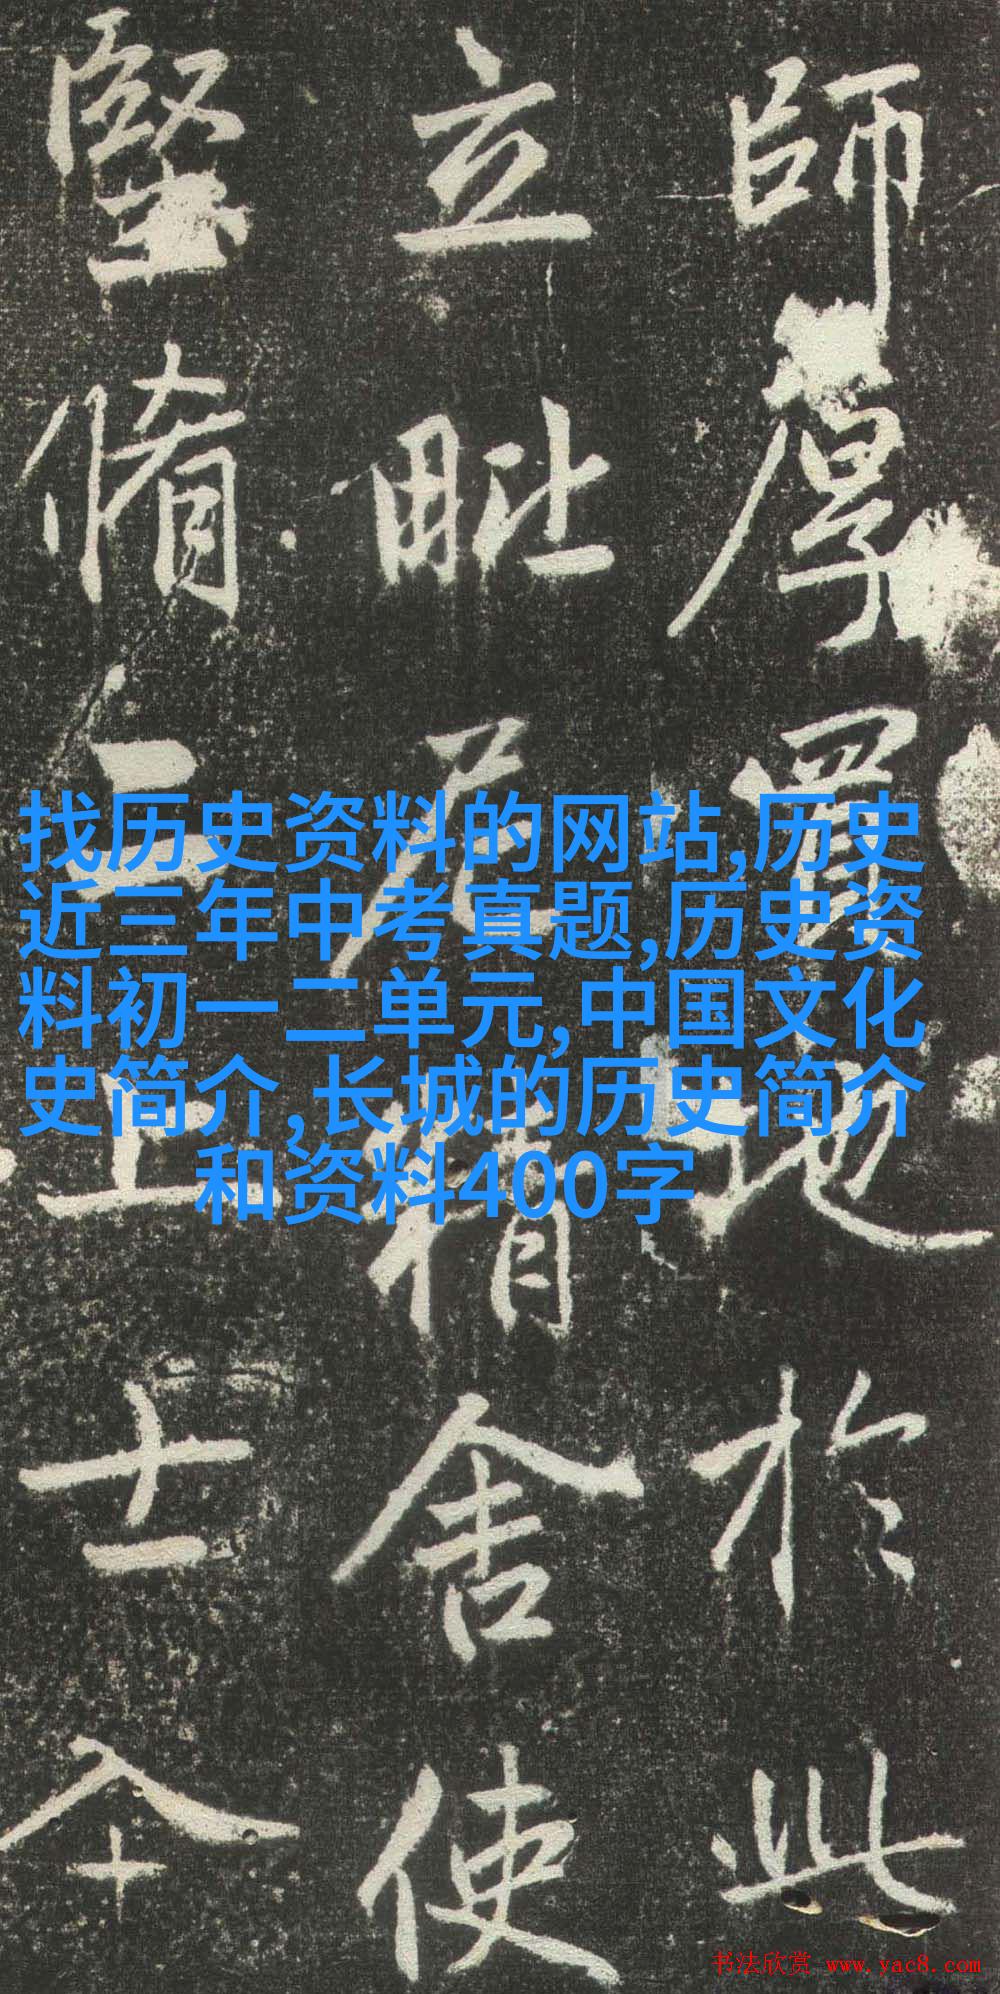 師厚買地於此
立毗尼精舍使
堅脩二上士
找历史资料的网站,历史
近三年中考真题,历史资
料初一二单元,中国文化
史简介,长城的历史简介
和资料400字
书法欣赏 www.yac8.com